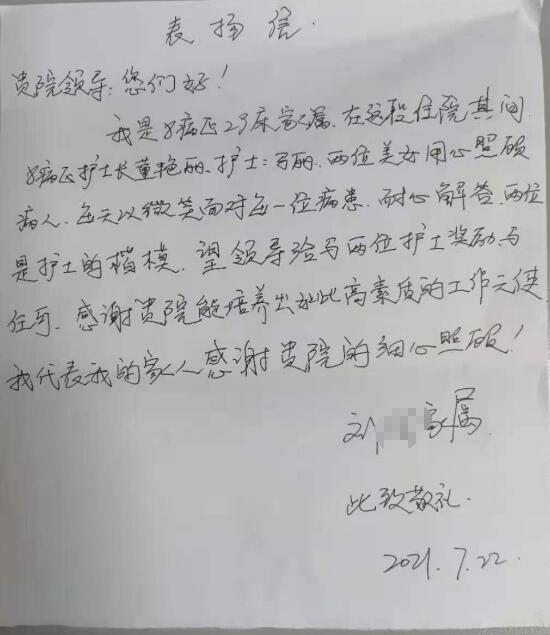 表扬信.
贵院领导:您们好!
我是8病区23床家属.在这段住院其间
8病区护士长董艳丽、护士:马丽.两位美女用心照顾
病人.每天以微笑面对每一位病患.耐心解答.两位
是护士的楷模.望领导给与两位护士奖励与
任可.感谢贵院能培养出如此高素质的工作天使
我代表我的家人感谢贵院的细心照顾!
刘 家属.
此致敬礼.
2021.7.22.